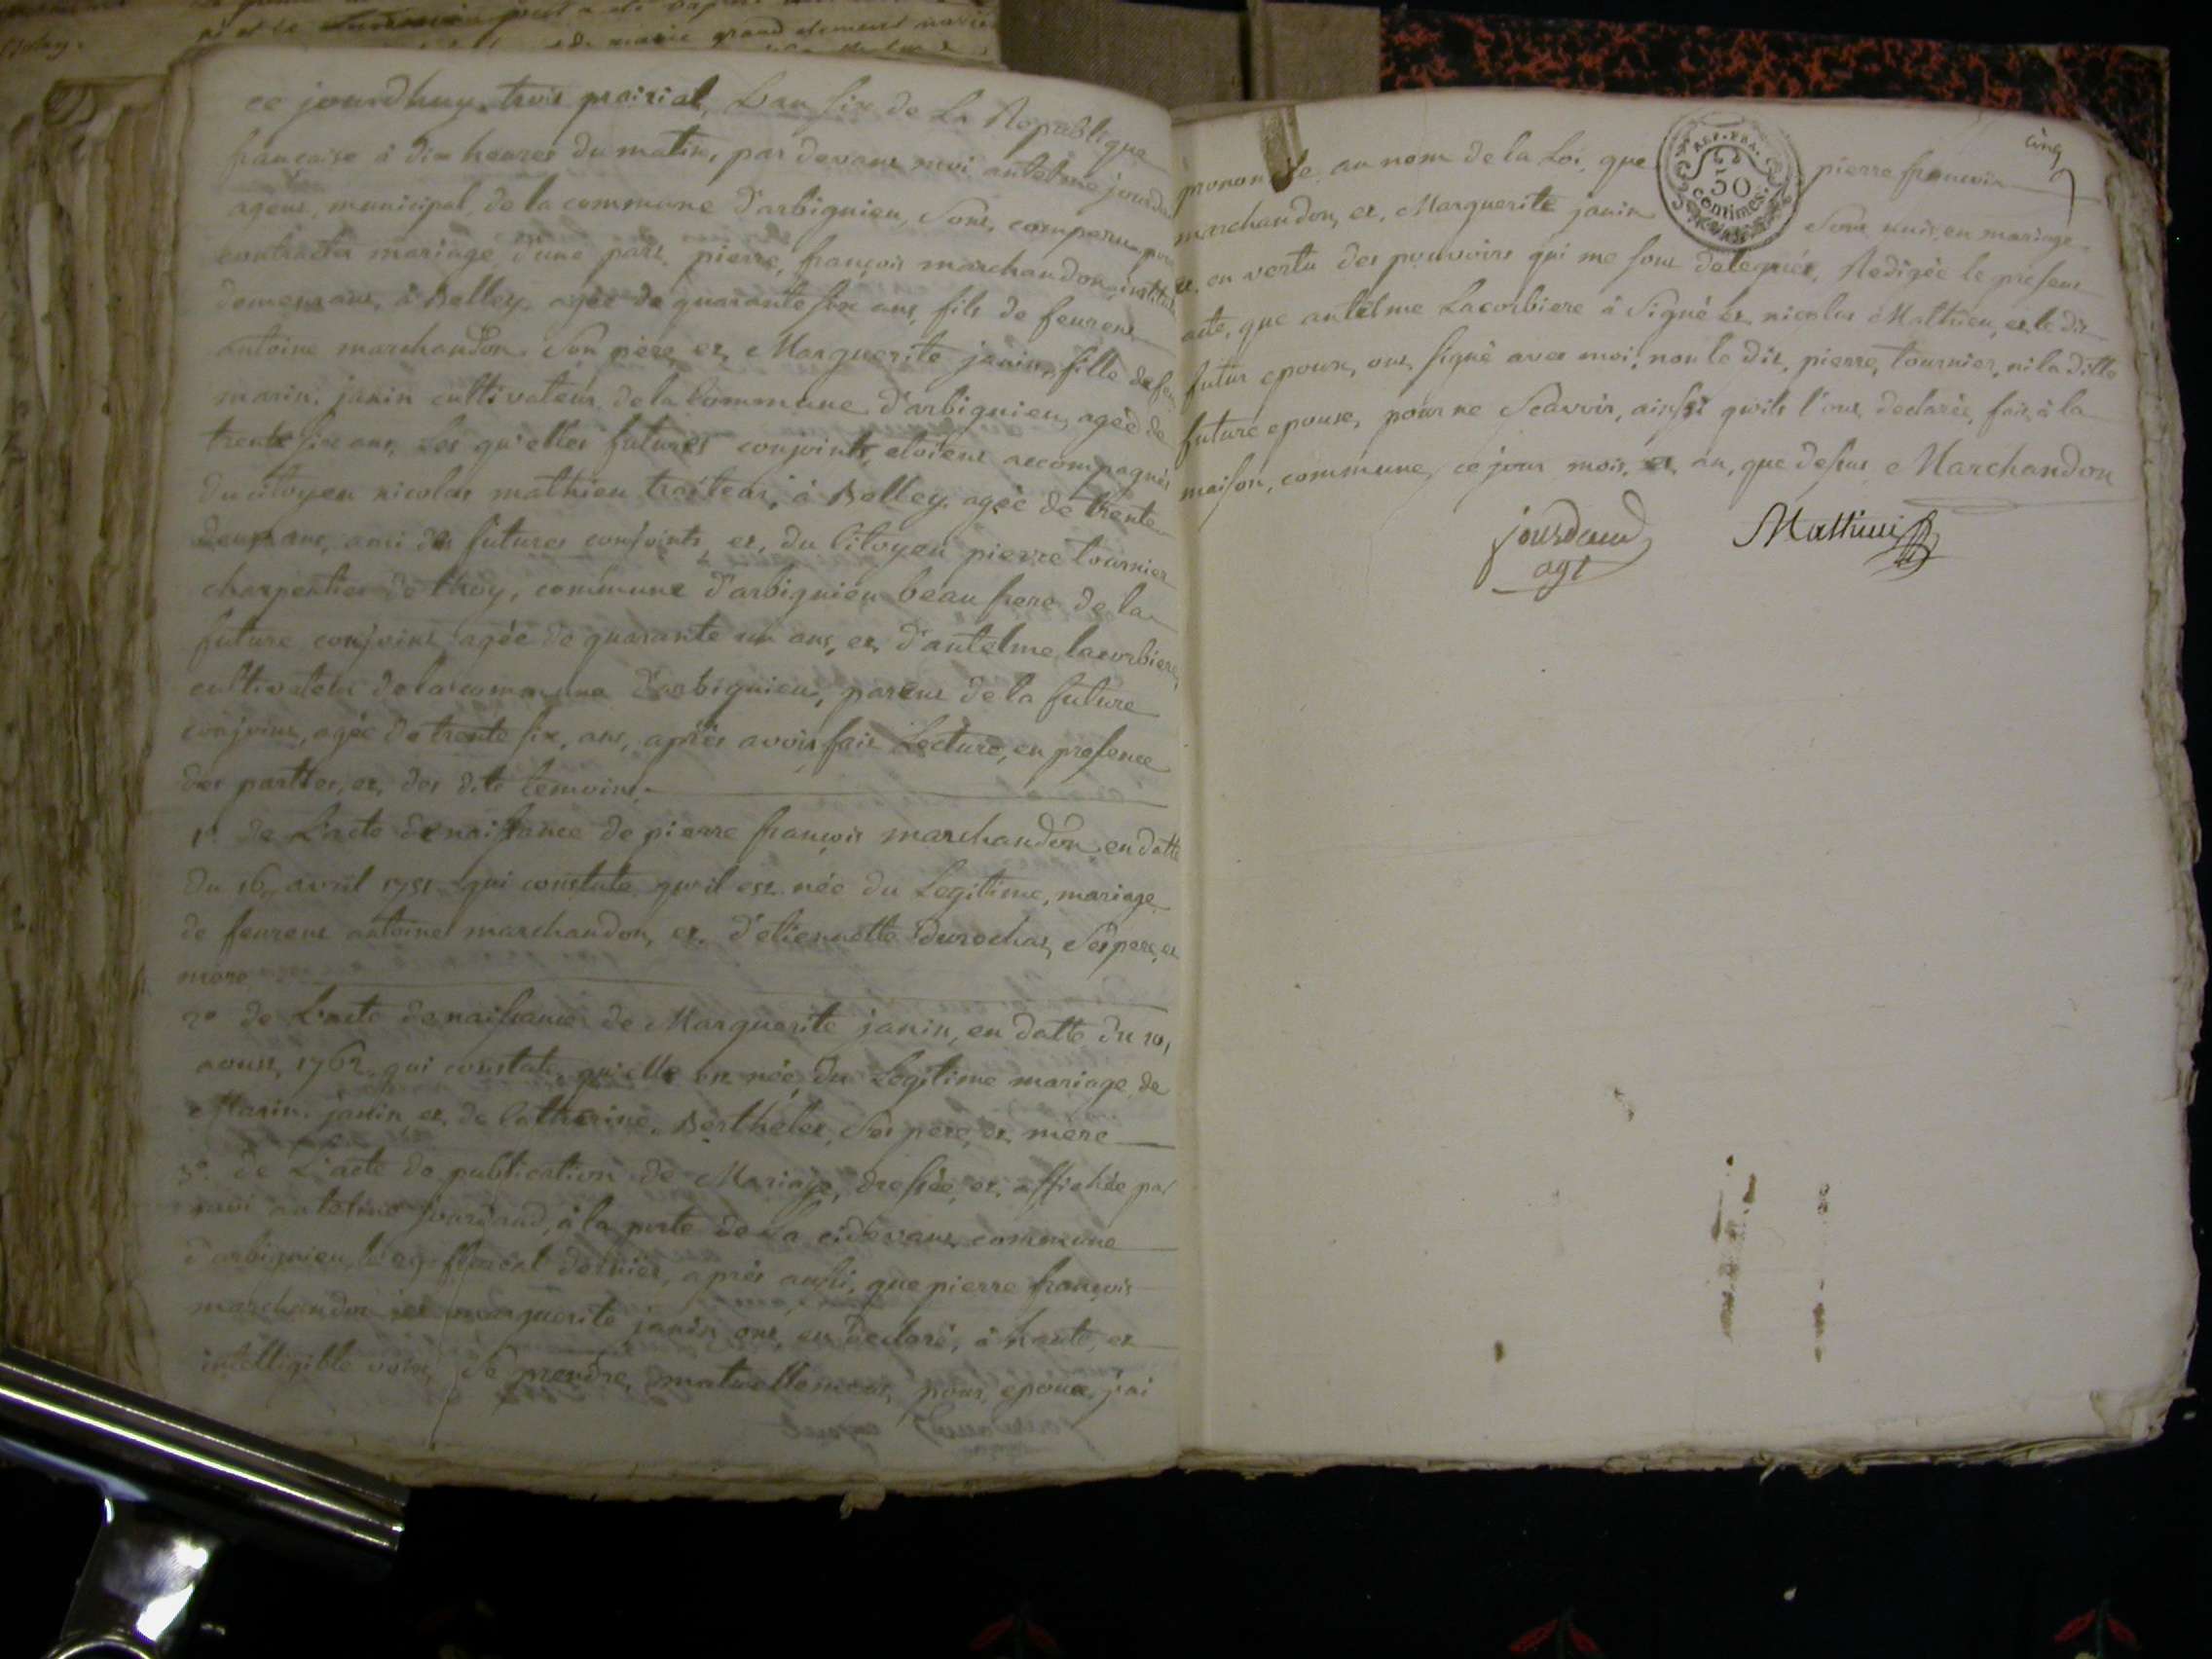 ce jourdhuy, trois prairial, L'an six de La Republique
française à dix heures du matin, par devant moi antelme jourdan
agent, municipal, de la commune d'arbignieu, Sont, comparu pour
contracter mariage d'une part, pierre, françois marchandon, institut
demeurant, à Belley, agée de quarante six ans, fils de
antoine marchandon, Son père, et, Marguerite janin, fille de feu
marin, janin cultivateur, de la Commune d'arbignieu, agée de
trente six ans, Les qu'elles futures conjoints, etoient accompagnés
du citoyen nicolas mathieu traiteur, à Belley agée de trente
deux ans, ami des futures conjoints, et, du Citoyen pierre tournier
charpentier de thoy, commune d'arbignieu beau frere de la
future conjoint agée de quarante un ans, et d'antelme lacorbiere,
cultivateur de la commune d'arbignieu, parent de la future
conjoint, agée de trente six, ans, après avoir fait Lecture, en presence
des parties, et, des dits temoins.
1°. de L'acte de naissance de pierre françois marchandon en datte
du 16, avril 1751 qui constate qu'il est née du Legitime, mariage
de antoine marchandon, et, d'etiennette durochat, Ses pere, et
mere
2° de L'acte de naissance de Marguerite janin, en datte du 10,
aoust, 1762 qui constate, qu'elle est née, du Legitime mariage, de
Marin, janin et, de Catherine, Berthelet, Ses pere, et, mère
3°. de L'acte de publication de Mariage, dressée, et, affichée par
moi antelme jourdand, à la porte de La cidevant, commune
d'arbignieu, le floréal dernier, après aussi, que pierre françois
marchandon, et marguerite janin ont, eu declaré, à haute, et
intelligible voix, Se prendre, mutuellement, pour, epoux, j'ai
cinq
prononcée, au nom de la Loi, que pierre françois
REP. FRA.
50
Centimes.
marchandon, et, Marguerite janin Sont unis, en mariage
et, en vertu des pouvoirs qui me sont delegués, Redigée le present
acte, que antelme Lacorbiere à Signé et, nicolas Mathieu, et le dit
futur epoux, ont, signé avec moi, non le dit, pierre, tournier, ni la ditte
future epouse, pour ne Scavoir, ainssi qu'ils l'ont, declarée, fait, à la
maison, commune, ce jour mois, et an, que dessus Marchandon
jourdand Mathieu
agt